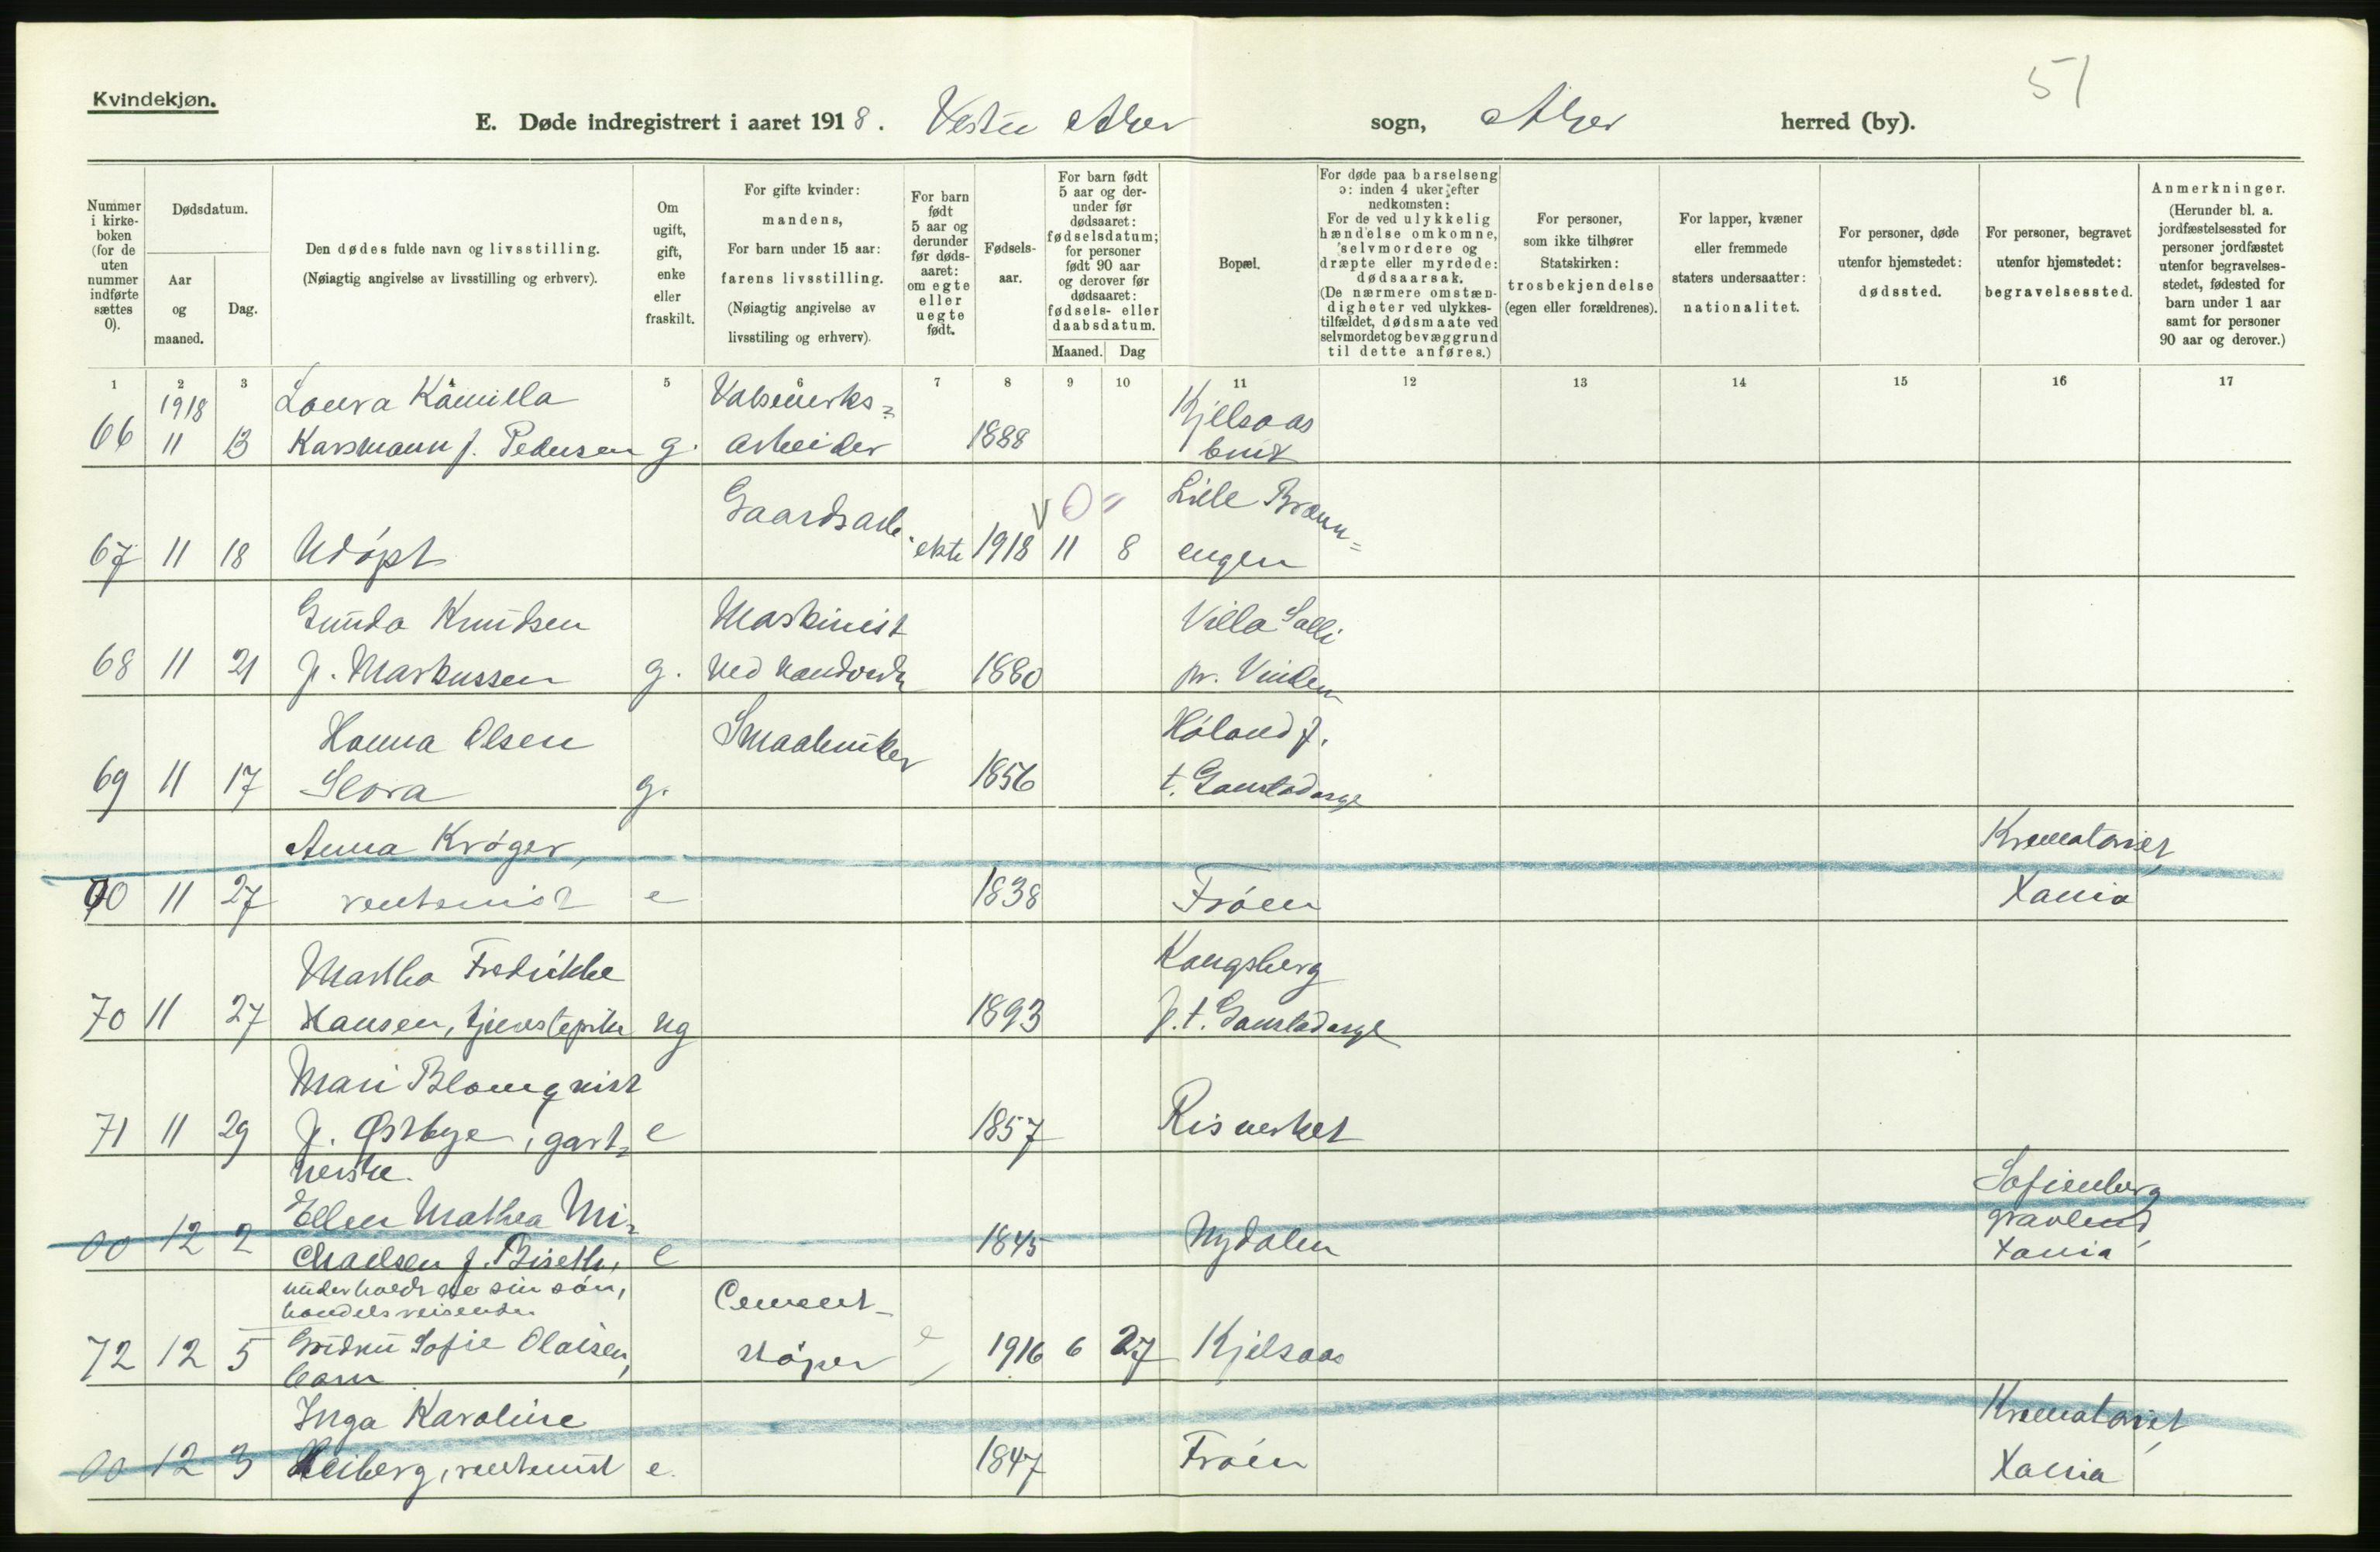 51
Kvindekjøn.
E. Døde indregistrert i aaret 1918. Vestre Aker sogn, Aker herred (by).
Nummer i kirke- boken (for de uten nummer indførte sættes 0).
Dødsdatum.
Aar og maaned.
Dag.
Den dødes fulde navn og livsstilling.
(Nøiagtig angivelse av livsstilling og erhverv).
Om ugift, gift, enke eller fraskilt.
For gifte kvinder: mandens, For barn under 15 aar: farens livsstilling. (Nøiagtig angivelse av livsstiling og erhverv).
For barn født 5 aar og derunder før døds- aaret: om egte eller uegte født.
Fødsels- aar.
For barn født 5 aar og der- under før dødsaaret: fødselsdatum; for personer født 90 aar og derover før dødsaaret: fødsels- eller daabsdatum.
Maaned. Dag
Bopæl.
For døde paa barselseng ɔ: inden 4 uker efter nedkomsten: For de ved ulykkelig hændelse omkomne, selvmordere og dræpte eller myrdede: dødsaarsak. (De nærmere omstæn- digheter ved ulykkes- tilfældet, dødsmaate ved selvmordet og bevæggrund til dette anføres.)
For personer, som ikke tilhører Statskirken: trosbekjendelse (egen eller forældrenes).
For lapper, kvæner eller fremmede staters undersaatter: nationalitet.
For personer, døde utenfor hjemstedet: dødssted.
For personer, begravet utenfor hjemstedet: begravelsessted.
Anmerkninger. (Herunder bl. a. jordfæstelsessted for personer jordfæstet utenfor begravelses- stedet, fødested for barn under 1 aar samt for personer 90 aar og derover.)
1 2 3 4 5 6 7 8 9 10 11 12 13 14 15 16 17
1918 Laura Kamilla Valseverks= Kjelsaas
66 11 13 Karsmann f. Pedersen g. arbeider 1888 bruk
Gaardsarb. V 0 " Lille Brænn=
67 11 18 Udøpt ekte 1918 11 8 engen
Gunda Knudsen Maskinist Villa Solli
68 11 21 f. Markussen g. ved vandverk 1880 pr. Vindern
Hanna Olsen Smaabruker Høland p.
69 11 17 Slora g. 1856 t. Gaustadasyl
Anna Krøger, Krematoriet,
00 11 27 rentenist e 1838 Frøen Xania
Martha Fredrikke Kongsberg
70 11 27 Hansen, tjenestepike ug 1893 p.t. Gaustadasyl
Mari Blomqvist
71 11 29 f. Østbye, gart= e 1857 Risverket
nerske.
Ellen Mathea Mi= Sofienberg
00 12 2 chaelsen f. Biseth, e 1845 Nydalen gravlund, Xania
underholdt av sin søn,
handelsreisende Cement-
72 12 5 Gudrun Sofie Olaisen, støper e 1916 6 27 Kjelsaas
barn
Inga Karoline Krematoriet,
00 12 3 Heiberg, rentenist e. 1847 Frøen Xania